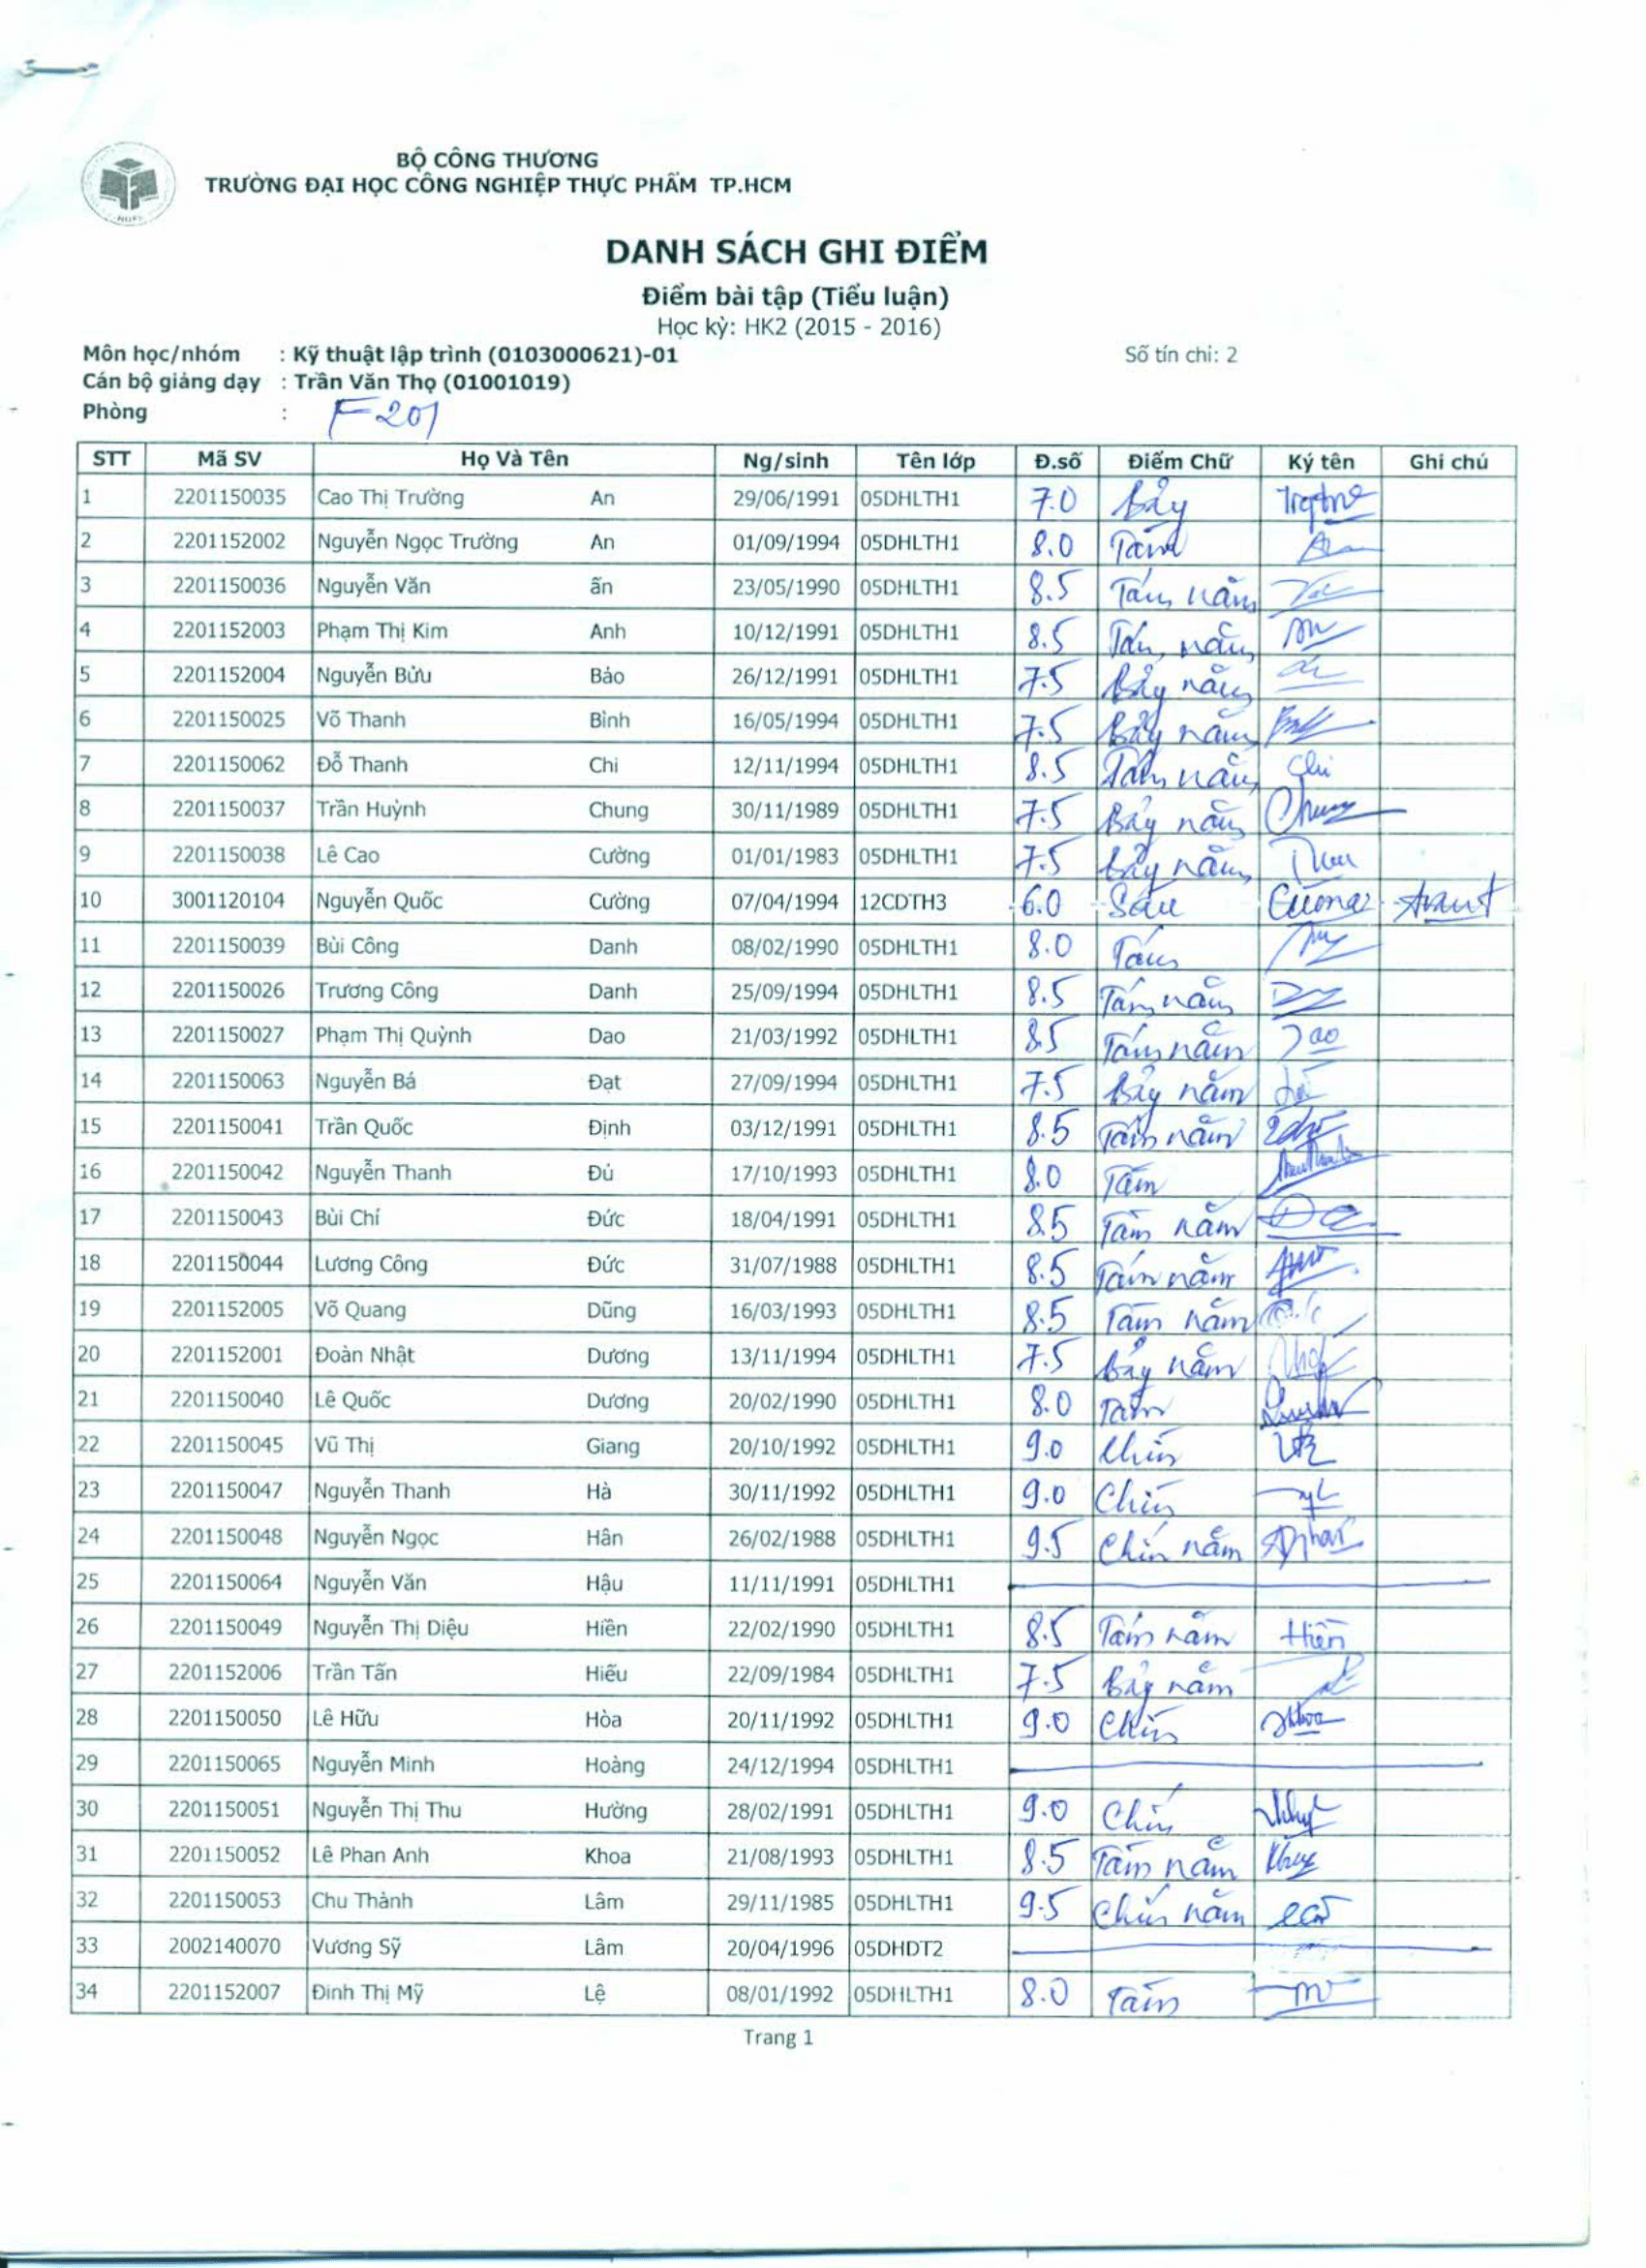 BỘ CÔNG THƯƠNG
TRƯỜNG ĐẠI HỌC CÔNG NGHIỆP THỰC PHẨM TP.HCM
DANH SÁCH GHI ĐIỂM
Điểm bài tập (Tiểu luận)
Học kỳ: HK2 (2015 - 2016)
Môn học/nhóm : Kỹ thuật lập trình (0103000621)-01 Số tín chỉ: 2
Cán bộ giảng dạy : Trần Văn Thọ (01001019)
Phòng : F201
STT Mã SV Họ Và Tên Ng/sinh Tên lớp Đ.số Điểm Chữ Ký tên Ghi chú
1 2201150035 Cao Thị Trường An 29/06/1991 05DHLTH1 7.0 Bảy
2 2201152002 Nguyễn Ngọc Trường An 01/09/1994 05DHLTH1 8.0 Tám
3 2201150036 Nguyễn Văn ấn 23/05/1990 05DHLTH1 8.5 Tám năm
4 2201152003 Phạm Thị Kim Anh 10/12/1991 05DHLTH1 8.5 Tám năm
5 2201152004 Nguyễn Bửu Bảo 26/12/1991 05DHLTH1 7.5 Bảy năm
6 2201150025 Võ Thanh Bình 16/05/1994 05DHLTH1 7.5 Bảy năm
7 2201150062 Đỗ Thanh Chi 12/11/1994 05DHLTH1 8.5 Tám năm Chi
8 2201150037 Trần Huỳnh Chung 30/11/1989 05DHLTH1 7.5 Bảy năm Chung
9 2201150038 Lê Cao Cường 01/01/1983 05DHLTH1 7.5 Bảy năm
10 3001120104 Nguyễn Quốc Cường 07/04/1994 12CDTH3 6.0 Sáu Cường
11 2201150039 Bùi Công Danh 08/02/1990 05DHLTH1 8.0 Tám
12 2201150026 Trương Công Danh 25/09/1994 05DHLTH1 8.5 Tám năm
13 2201150027 Phạm Thị Quỳnh Dao 21/03/1992 05DHLTH1 8.5 Tám năm Dao
14 2201150063 Nguyễn Bá Đạt 27/09/1994 05DHLTH1 7.5 Bảy năm
15 2201150041 Trần Quốc Định 03/12/1991 05DHLTH1 8.5 Tám năm
16 2201150042 Nguyễn Thanh Đủ 17/10/1993 05DHLTH1 8.0 Tám
17 2201150043 Bùi Chí Đức 18/04/1991 05DHLTH1 8.5 Tám năm
18 2201150044 Lương Công Đức 31/07/1988 05DHLTH1 8.5 Tám năm
19 2201152005 Võ Quang Dũng 16/03/1993 05DHLTH1 8.5 Tám năm
20 2201152001 Đoàn Nhật Dương 13/11/1994 05DHLTH1 7.5 Bảy năm
21 2201150040 Lê Quốc Dương 20/02/1990 05DHLTH1 8.0 Tám
22 2201150045 Vũ Thị Giang 20/10/1992 05DHLTH1 9.0 Chín
23 2201150047 Nguyễn Thanh Hà 30/11/1992 05DHLTH1 9.0 Chín
24 2201150048 Nguyễn Ngọc Hân 26/02/1988 05DHLTH1 9.5 Chín năm
25 2201150064 Nguyễn Văn Hậu 11/11/1991 05DHLTH1
26 2201150049 Nguyễn Thị Diệu Hiền 22/02/1990 05DHLTH1 8.5 Tám năm Hiền
27 2201152006 Trần Tấn Hiếu 22/09/1984 05DHLTH1 7.5 Bảy năm
28 2201150050 Lê Hữu Hòa 20/11/1992 05DHLTH1 9.0 Chín
29 2201150065 Nguyễn Minh Hoàng 24/12/1994 05DHLTH1
30 2201150051 Nguyễn Thị Thu Hường 28/02/1991 05DHLTH1 9.0 Chín
31 2201150052 Lê Phan Anh Khoa 21/08/1993 05DHLTH1 8.5 Tám năm
32 2201150053 Chu Thành Lâm 29/11/1985 05DHLTH1 9.5 Chín năm
33 2002140070 Vương Sỹ Lâm 20/04/1996 05DHDT2
34 2201152007 Đinh Thị Mỹ Lệ 08/01/1992 05DHLTH1 8.0 Tám
Trang 1